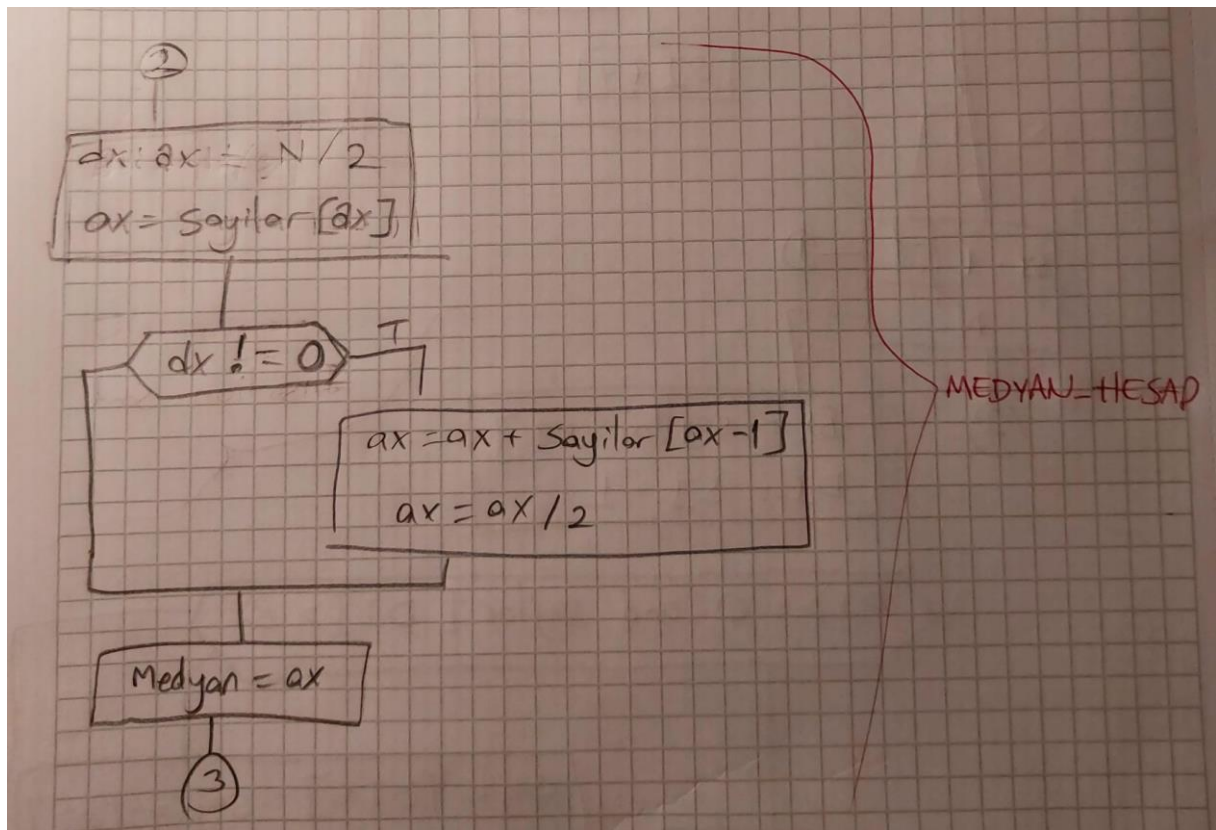 2
dx:ax = N/2
ax = Sayilar[ax]
dx != 0
T
ax = ax + Sayilar [ax-1]
ax = ax/2
Medyan = ax
3
MEDYAN_HESAP